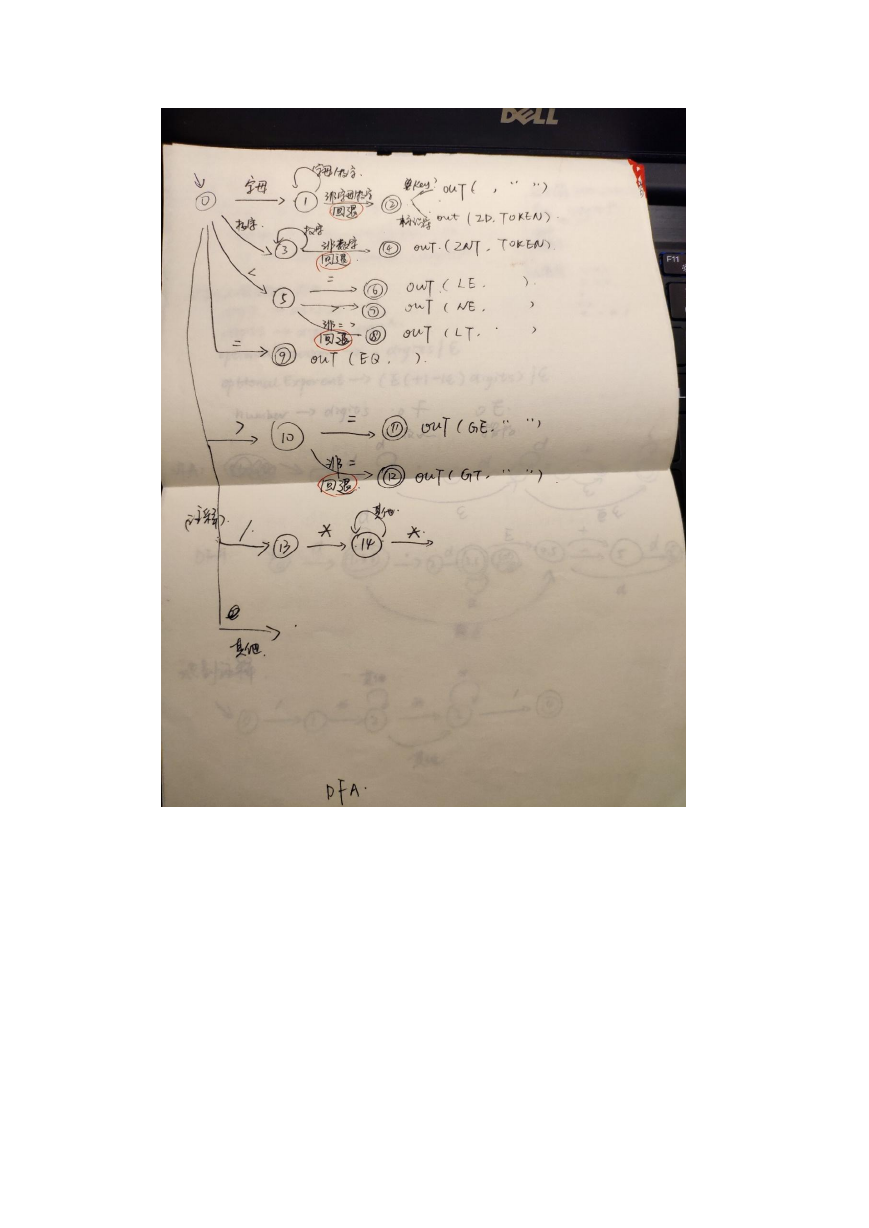 DELL
F11
字母/数字.
字母 非字母/数字 是key? OUT ( , " " )
0 1 回退 2
标识符 out (ID, TOKEN).
数字 数字
3 非数字 4 out. (INT, TOKEN).
回退
< = 6 OUT (LE, ).
5 > 7 OUT (NE, )
非= > 8 OUT (LT, )
回退
= 9 OUT (EQ, ).
> 10 = 11 OUT (GE, " ")
非= 12 OUT (GT, " ").
回退
(注释). 其他.
/. 13 * 14 *.
其他.
DFA.